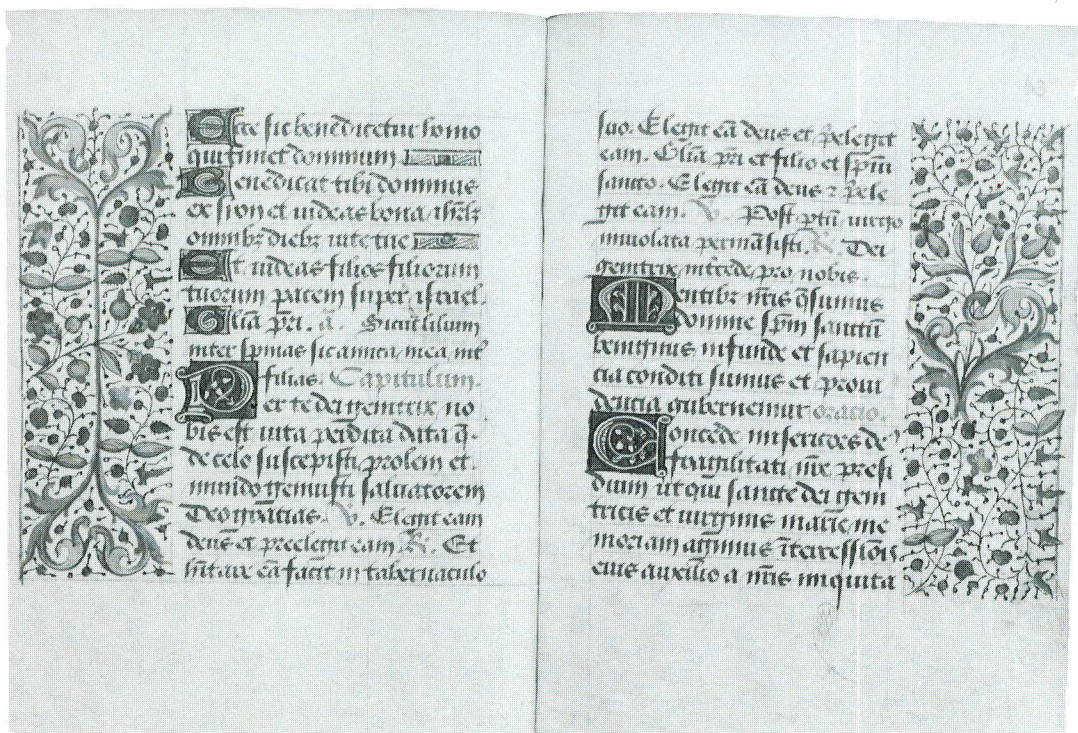 Ecce sic benedicetur homo
qui timet dominum
Benedicat tibi dominus
ex sion et uideas bona ihrlz
omnibz diebz uite tue
Et uideas filios filiorum
tuorum pacem super israel.
Glia pri. a. Sicut lilium
inter spinas sic amica mea int
filias. Capitulum.
Per te dei genitrix no
bis est uita perdita data q̄
de celo suscepisti prolem et
mundo genuisti saluatorem
Deo gratias. v. Elegit eam
deus et preelegit eam. R. Et
hītare eā facit in tabernaculo
suo. Elegit eā deus et p̄elegit
eam. Glīa pr̄i et filio et sp̄ui
sancto. Elegit eā deus ⁊ p̄ele
git eam. v. Post ptū uirgo
inuiolata permāsisti. R. Dei
genitrix int̄cede pro nobis.
Mentibz nr̄is q̄sumus
domine sp̄m sanctū
benignus infunde et sapien
cia conditi sumus et proui
dencia gubernemur oracio.
Concede misericors de⁹
fragilitati nr̄e presi
dium ut qui sancte dei geni
tricis et uirginis marie me
moriam agimus īterressionis
eius auxilio a nr̄is iniquita